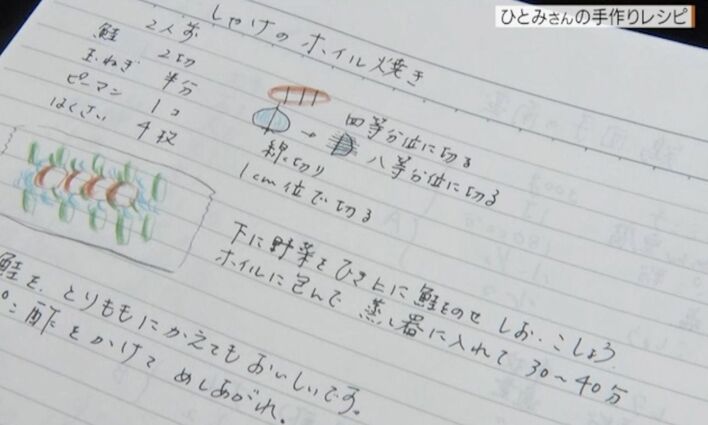 ひとみさんの手作りレシピ
しゃけのホイル焼き
2人分
鮭 2切
玉ねぎ 半分
ピーマン 1コ
はくさい 4枚
四等分位に切る
→ 八等分位に切る
線切り
1cm位で切る
下に野菜をひき上に鮭をのせ しお・こしょう
ホイルに包んで 蒸し器に入れて 30〜40分
鮭を、とりももにかえてもおいしいです。
ポン酢をかけて めしあがれ。